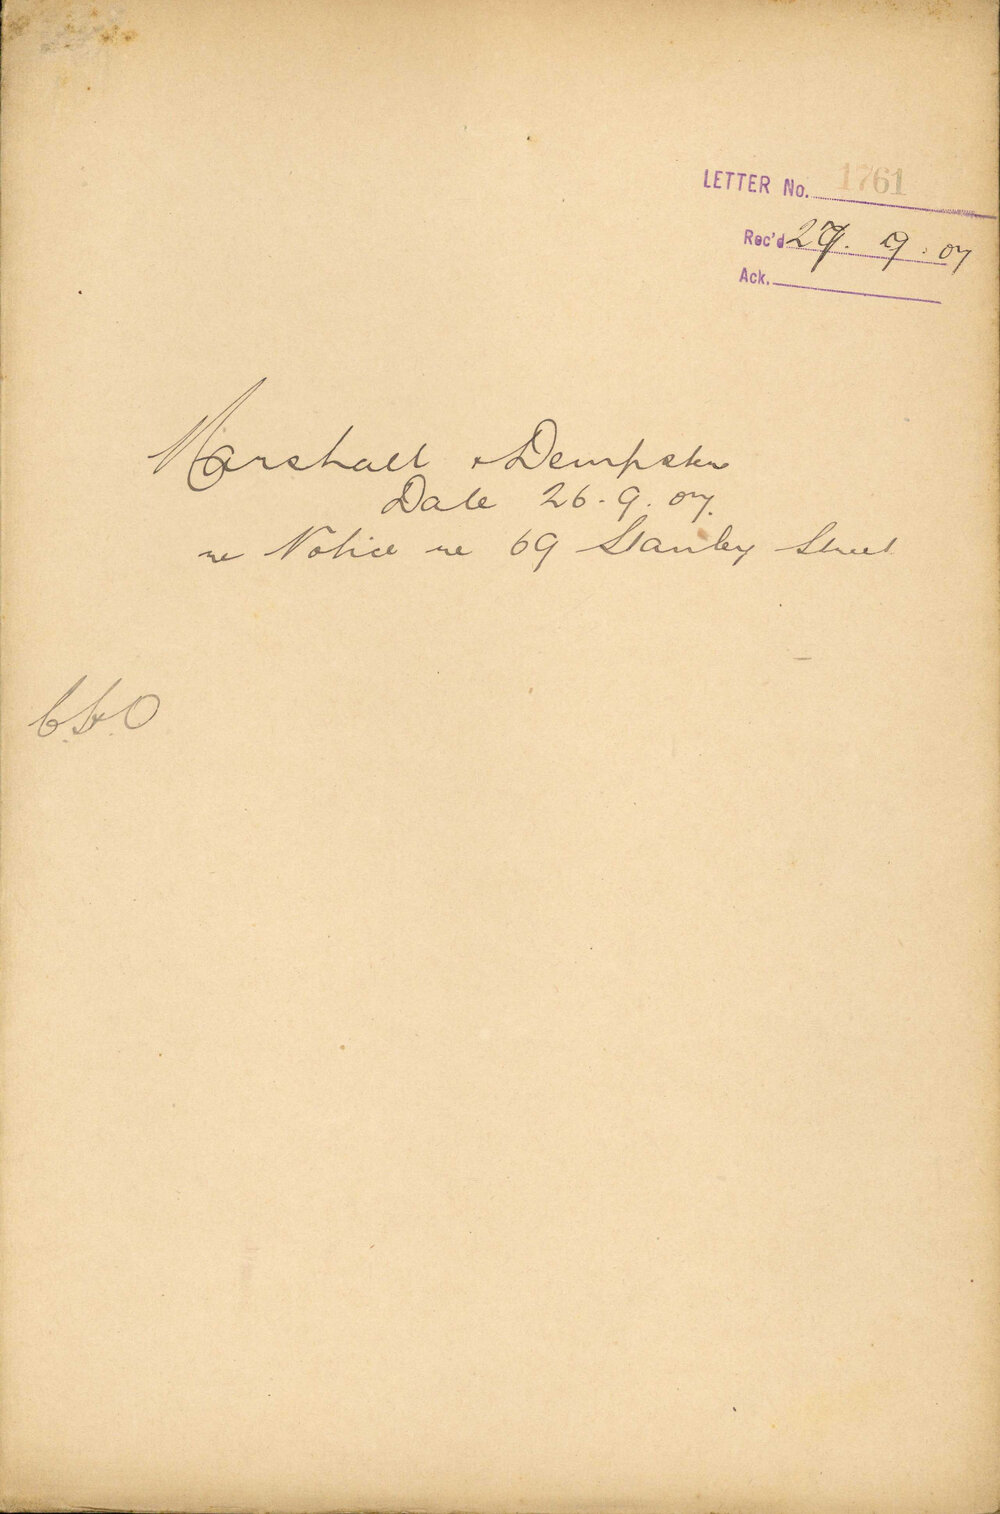 LETTER No. 1761
Rec'd 27. 9. 07
Ack.
Marshall & Dempster
Date 26. 9. 07.
re Notice re 69 Stanley Street